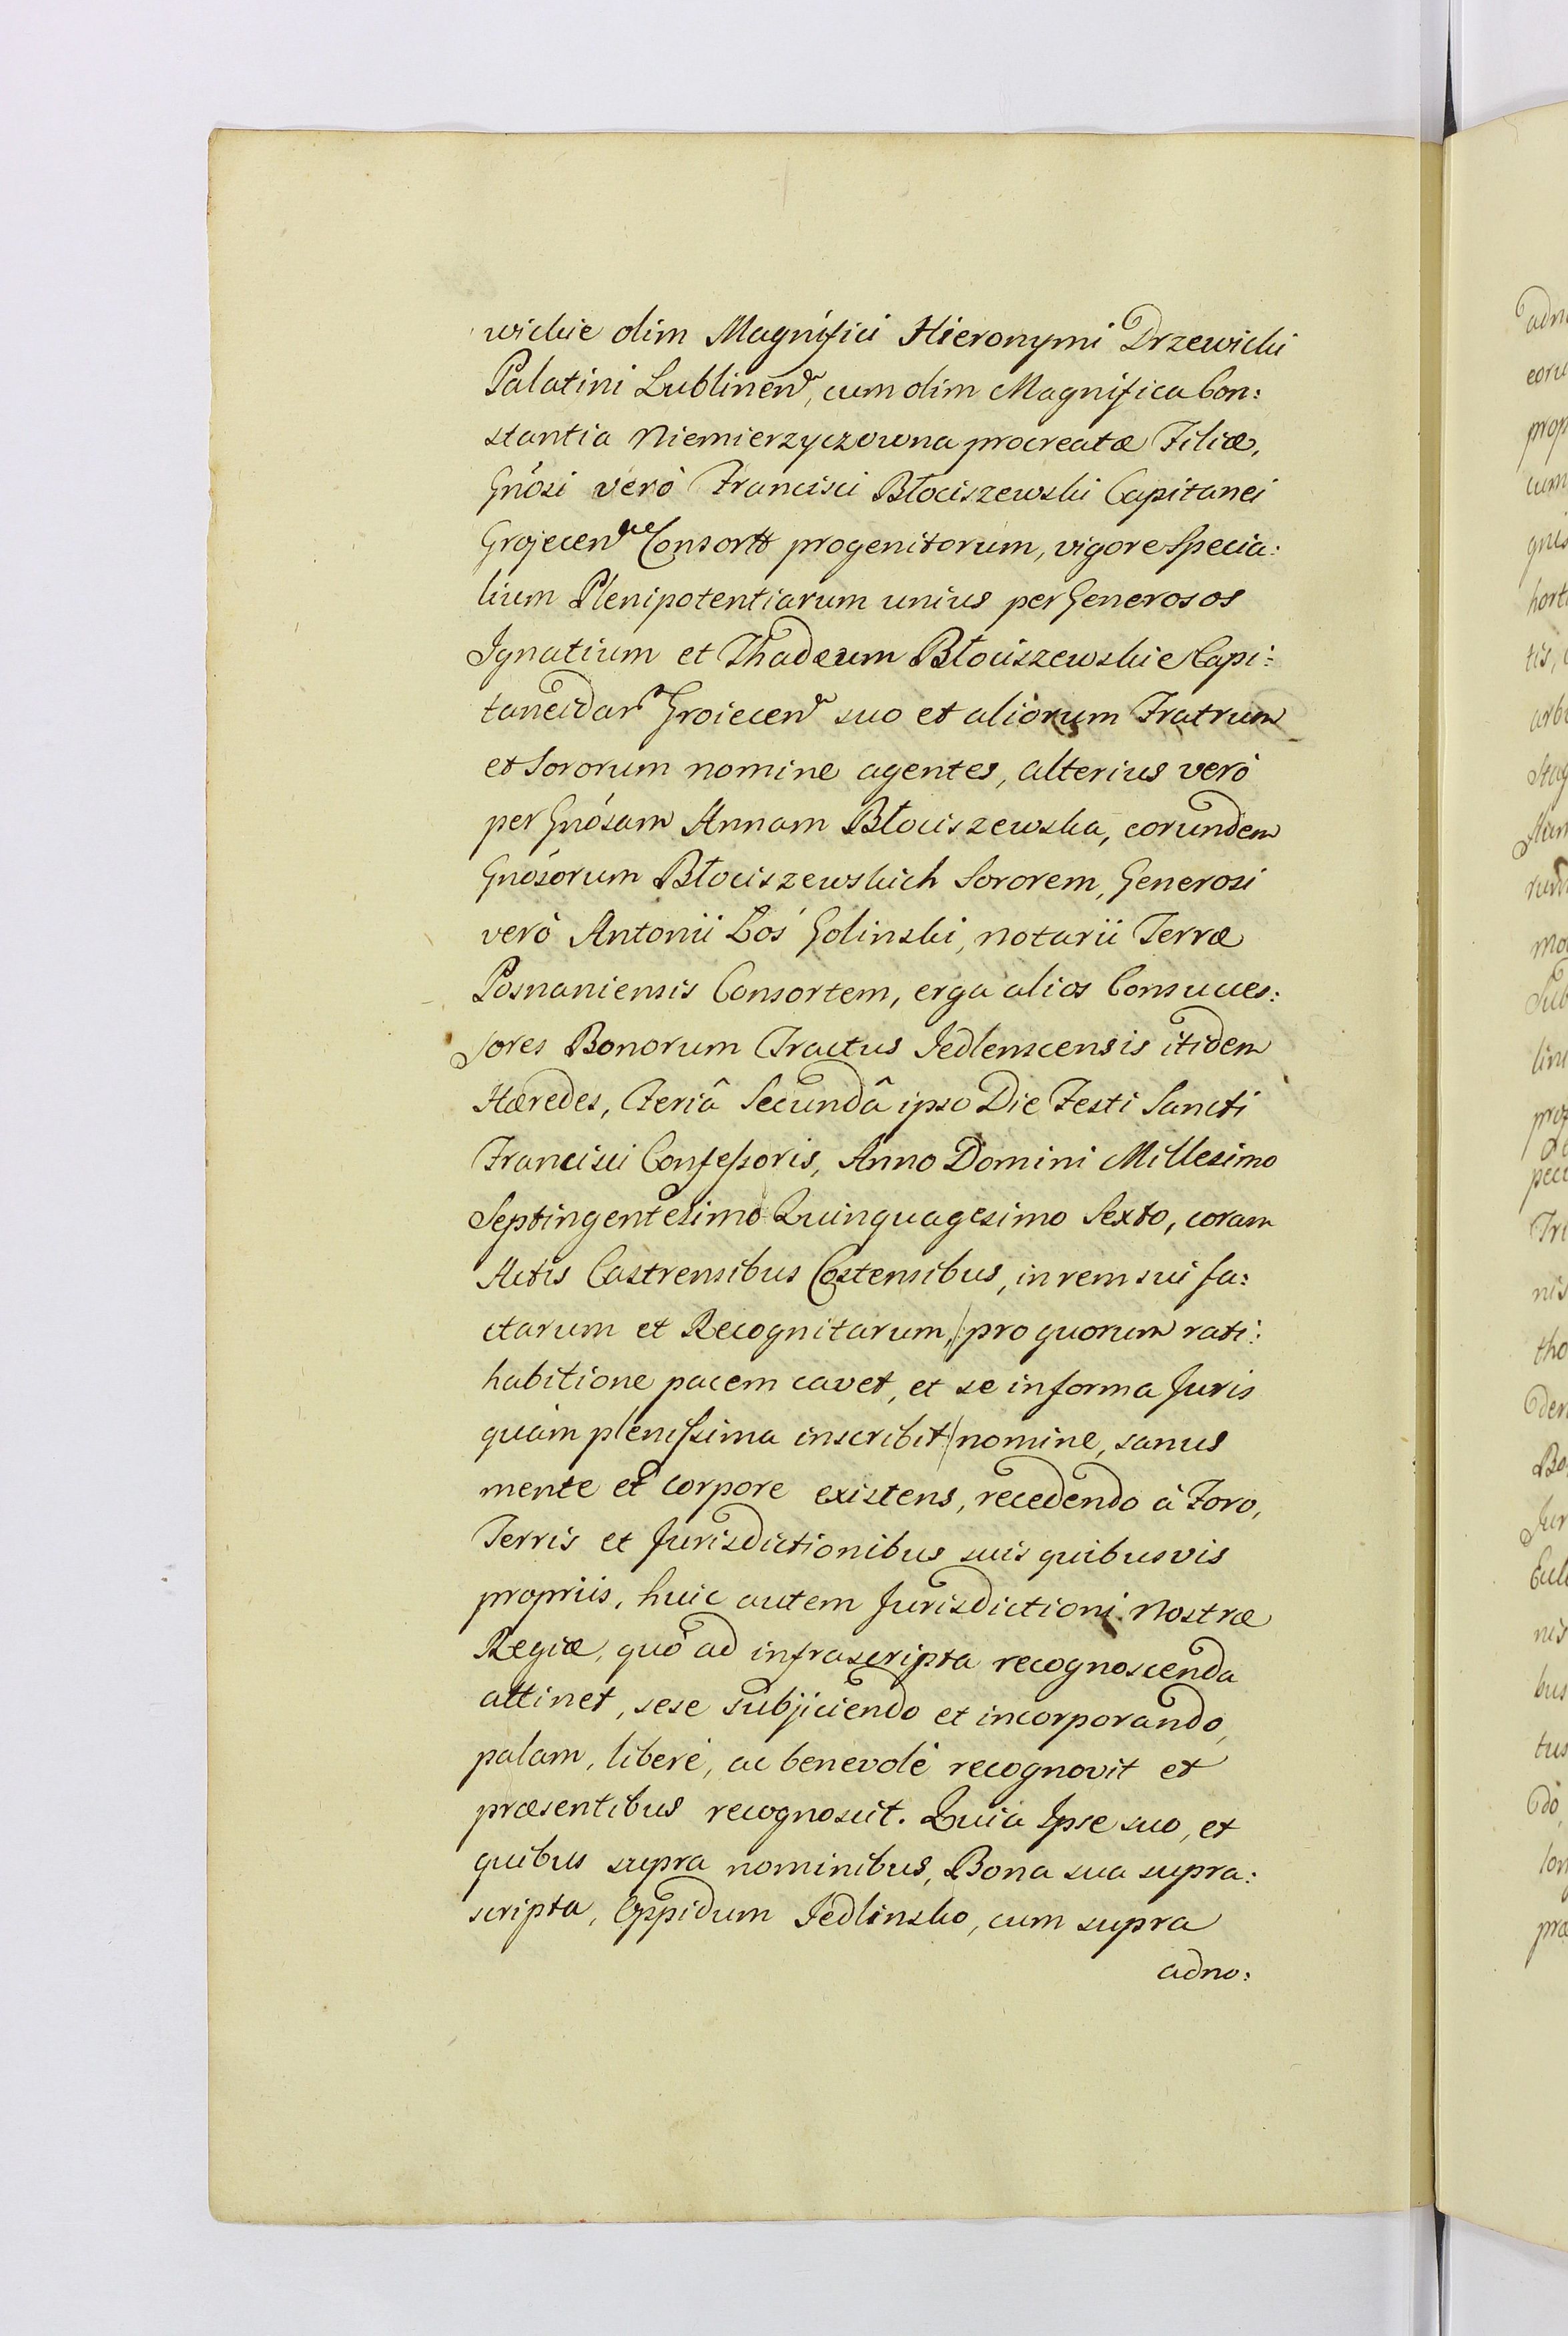 wickie olim Magnifici Hieronymi Drzewicki
Palatini Lublinen, cum olim Magnifica Con:
stantia Niemierzyczowna procreatæ Filiæ,
Gnosi verò Francisci Błociszewski Capitanei
Grojecen Consortt progenitorum, vigore Specia:
lium Plenipotentiarum unius per Generosos
Ignatium et Thadeum Błociszewskie Capi:
taneidar Groiecen suo et aliorum Fratrum
et Sororum nomine agentes, alterius verò
per Gnosam Annam Błociszewska, eorundem
Gnosorum Błociszewskich Sororem, Generosi
verò Antonii Łos Golinski, notarii Terræ
Posnaniensis Consortem, erga alios Consucces:
sores Bonorum Tractus Jedlenscensis itidem
Hæredes, Feriâ Secundâ ipso Die Festi Sancti
Francisci Confessoris, Anno Domini Millesimo
Septingentesimo Quinquagesimo Sexto, coram
Actis Castrensibus Costensibus, in rem sui fa:
ctarum et Recognitarum, /pro quorum rati:
habitione pacem cavet, et se in forma Juris
quàm plenissima inscribit/ nomine, sanus
mente et corpore existens, recedendo à Foro,
Terris et Jurisdictionibus suis quibusvis
propriis, huic autem Jurisdictioni Nostræ
Regiæ, quò ad infrascripta recognoscenda
attinet, sese subjiciendo et incorporando,
palam, liberè, ac benevolè recognovit et
præsentibus recognoscit. Quia Ipse suo, et
quibus supra nominibus, Bona sua supra:
scripta, Oppidum Jedlinsko, cum supra
adno:
adn
prop
cum
hort
tis,
arb
mo
Sub
prop
nis
tho
Bo
Jur
Eccl
bus
tus
do
præ